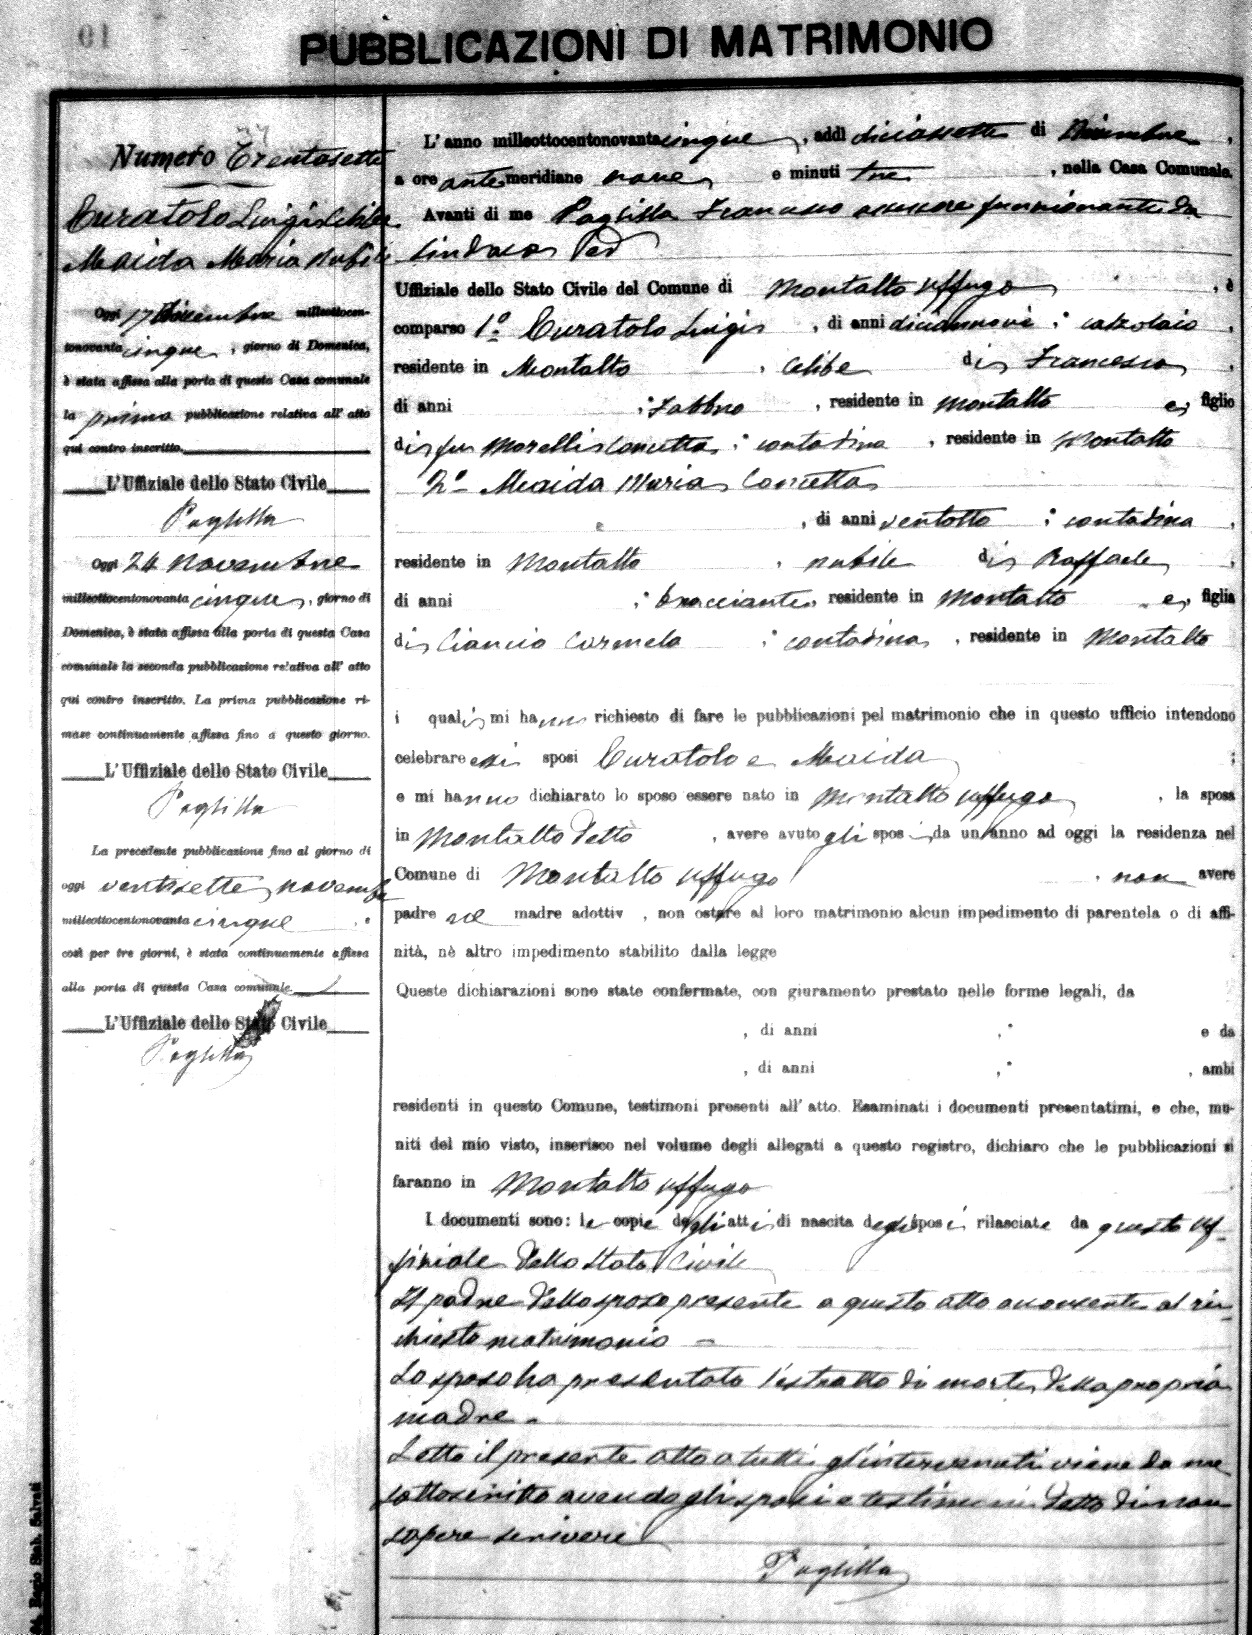 01
PUBBLICAZIONI DI MATRIMONIO
37
Numero Trentasette
Curatolo Luigi Celibe
Maida Maria Nubile
Oggi 17 millottocen-
tonovanta cinque, giorno di Domenica,
è stata affissa alla porta di questa Casa comunale
la prima pubblicazione relativa all' atto
qui contro inscritto.
L'Uffiziale dello Stato Civile
Oggi 24 Novembre
millottocentonovanta cinque, giorno di
Domenica, è stata affissa alla porta di questa Casa
comunale la seconda pubblicazione relativa all' atto
qui contro inscritto. La prima pubblicazione ri-
mase continuamente affissa fino a questo giorno.
L'Uffiziale dello Stato Civile
La precedente pubblicazione fino al giorno di
oggi ventisette novembre
millottocentonovanta cinque, e
così per tre giorni, è stata continuamente affissa
alla porta di questa Casa comunale.
L'Uffiziale dello Stato Civile
L'anno milleottocentonovanta cinque, addì diciassette di
a ore antemeridiane nove e minuti tre, nella Casa Comunale.
Avanti di me Francesco assessore funzionante da
sindaco ed
Uffiziale dello Stato Civile del Comune di Montalto Uffugo, è
comparso 1º Curatolo Luigi, di anni diciannove; calzolaio,
residente in Montalto, celibe di Francesco,
di anni ; fabbro, residente in Montalto e, figlio
di fu Morelli Concetta; contadina, residente in Montalto
2º Maida Maria Concetta
, di anni ventotto; contadina,
residente in Montalto, nubile di Raffaele,
di anni ; bracciante, residente in Montalto e, figlia
di Ciancio Carmela; contadina, residente in Montalto
i quali mi hanno richiesto di fare le pubblicazioni pel matrimonio che in questo ufficio intendono
celebrare essi sposi Curatolo e Maida;
e mi hanno dichiarato lo sposo essere nato in Montalto Uffugo, la sposa
in Montalto detto, avere avuto gli sposi da un anno ad oggi la residenza nel
Comune di Montalto Uffugo, non avere
padre ne madre adottiv , non ostare al loro matrimonio alcun impedimento di parentela o di affi-
nità, nè altro impedimento stabilito dalla legge
Queste dichiarazioni sono state confermate, con giuramento prestato nelle forme legali, da
, di anni ; e da
, di anni ; , ambi
residenti in questo Comune, testimoni presenti all' atto. Esaminati i documenti presentatimi, e che, mu-
niti del mio visto, inserisco nel volume degli allegati a questo registro, dichiaro che le pubblicazioni si
faranno in Montalto Uffugo
I documenti sono: le copie degli atti di nascita degli sposi rilasciate da questo uf-
fiziale dello Stato Civile
Il padre dello sposo presente a questo atto acconsente al ri-
chiesto matrimonio =
Lo sposo ha presentato l'estratto di morte della propria
madre.
Letto il presente atto a tutti gl'intervenuti viene da me
sottoscritto avendo gli sposi e testimoni detto di non
sapere scrivere
24. Regio Stab. Salvati